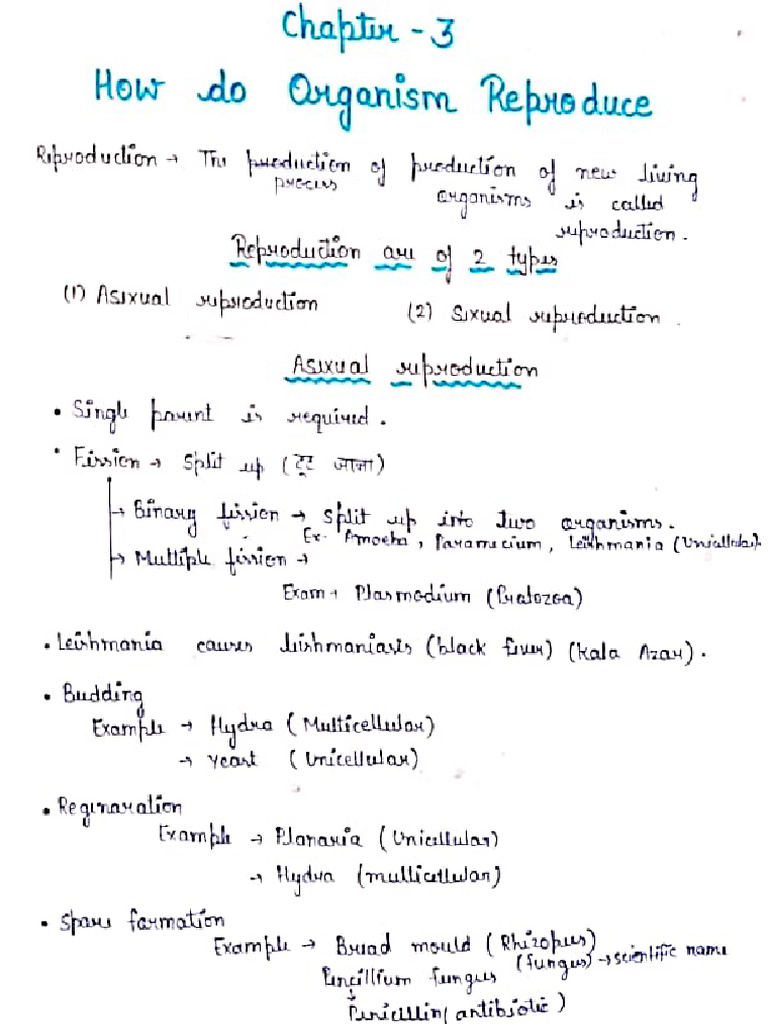 Chapter - 3
How do Organism Reproduce
Reproduction → The production of production of new living
process
organisms is called
reproduction.
Reproduction are of 2 types
(1) Asexual reproduction
(2) Sexual reproduction.
Asexual reproduction
• Single parent is required.
• Fission → Split up (टूट जाना)
→ Binary fission → Split up into two organisms.
Ex. Amoeba, Paramecium, Leishmania (Unicellular).
→ Multiple fission →
Exam → Plasmodium (Protozoa)
• Leishmania causes leishmaniasis (black fever) (Kala Azar).
• Budding
Example → Hydra (Multicellular)
→ Yeast (Unicellular)
• Reginaration
Example → Planaria (Unicellular)
→ Hydra (multicellular)
• Spore formation
Example → Bread mould (Rhizopus)
(fungus) → scientific name
Pencillium fungus
↓
Penicillin (antibiotic)